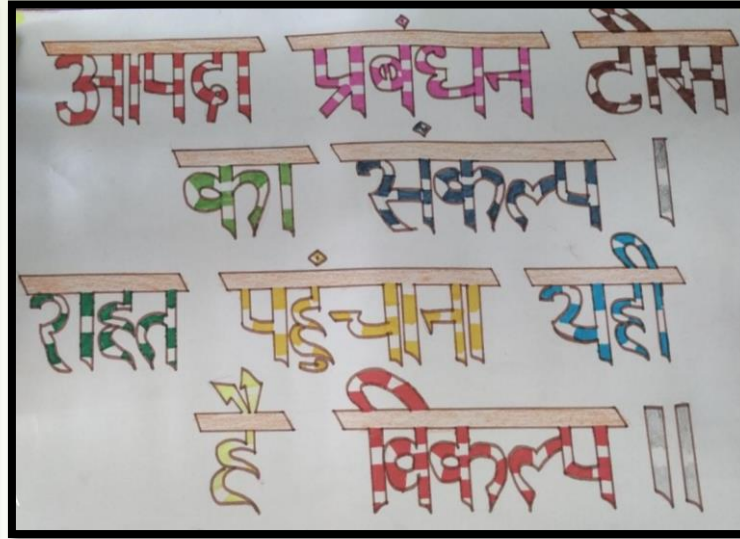 आपदा प्रबंधन टीम
का संकल्प ।
राहत पहुंचाना यही
है विकल्प ॥